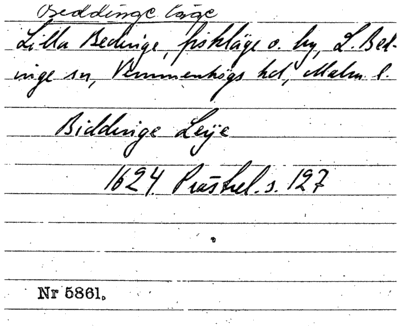 Beddinge läge
Lilla Bedinge, fiskläge o. by, L. Bed-
inge sn, Vemmenhögs hd, Malm. l.
Biddinge Leije
1624 Prästrel. s. 127
Nr 5861.